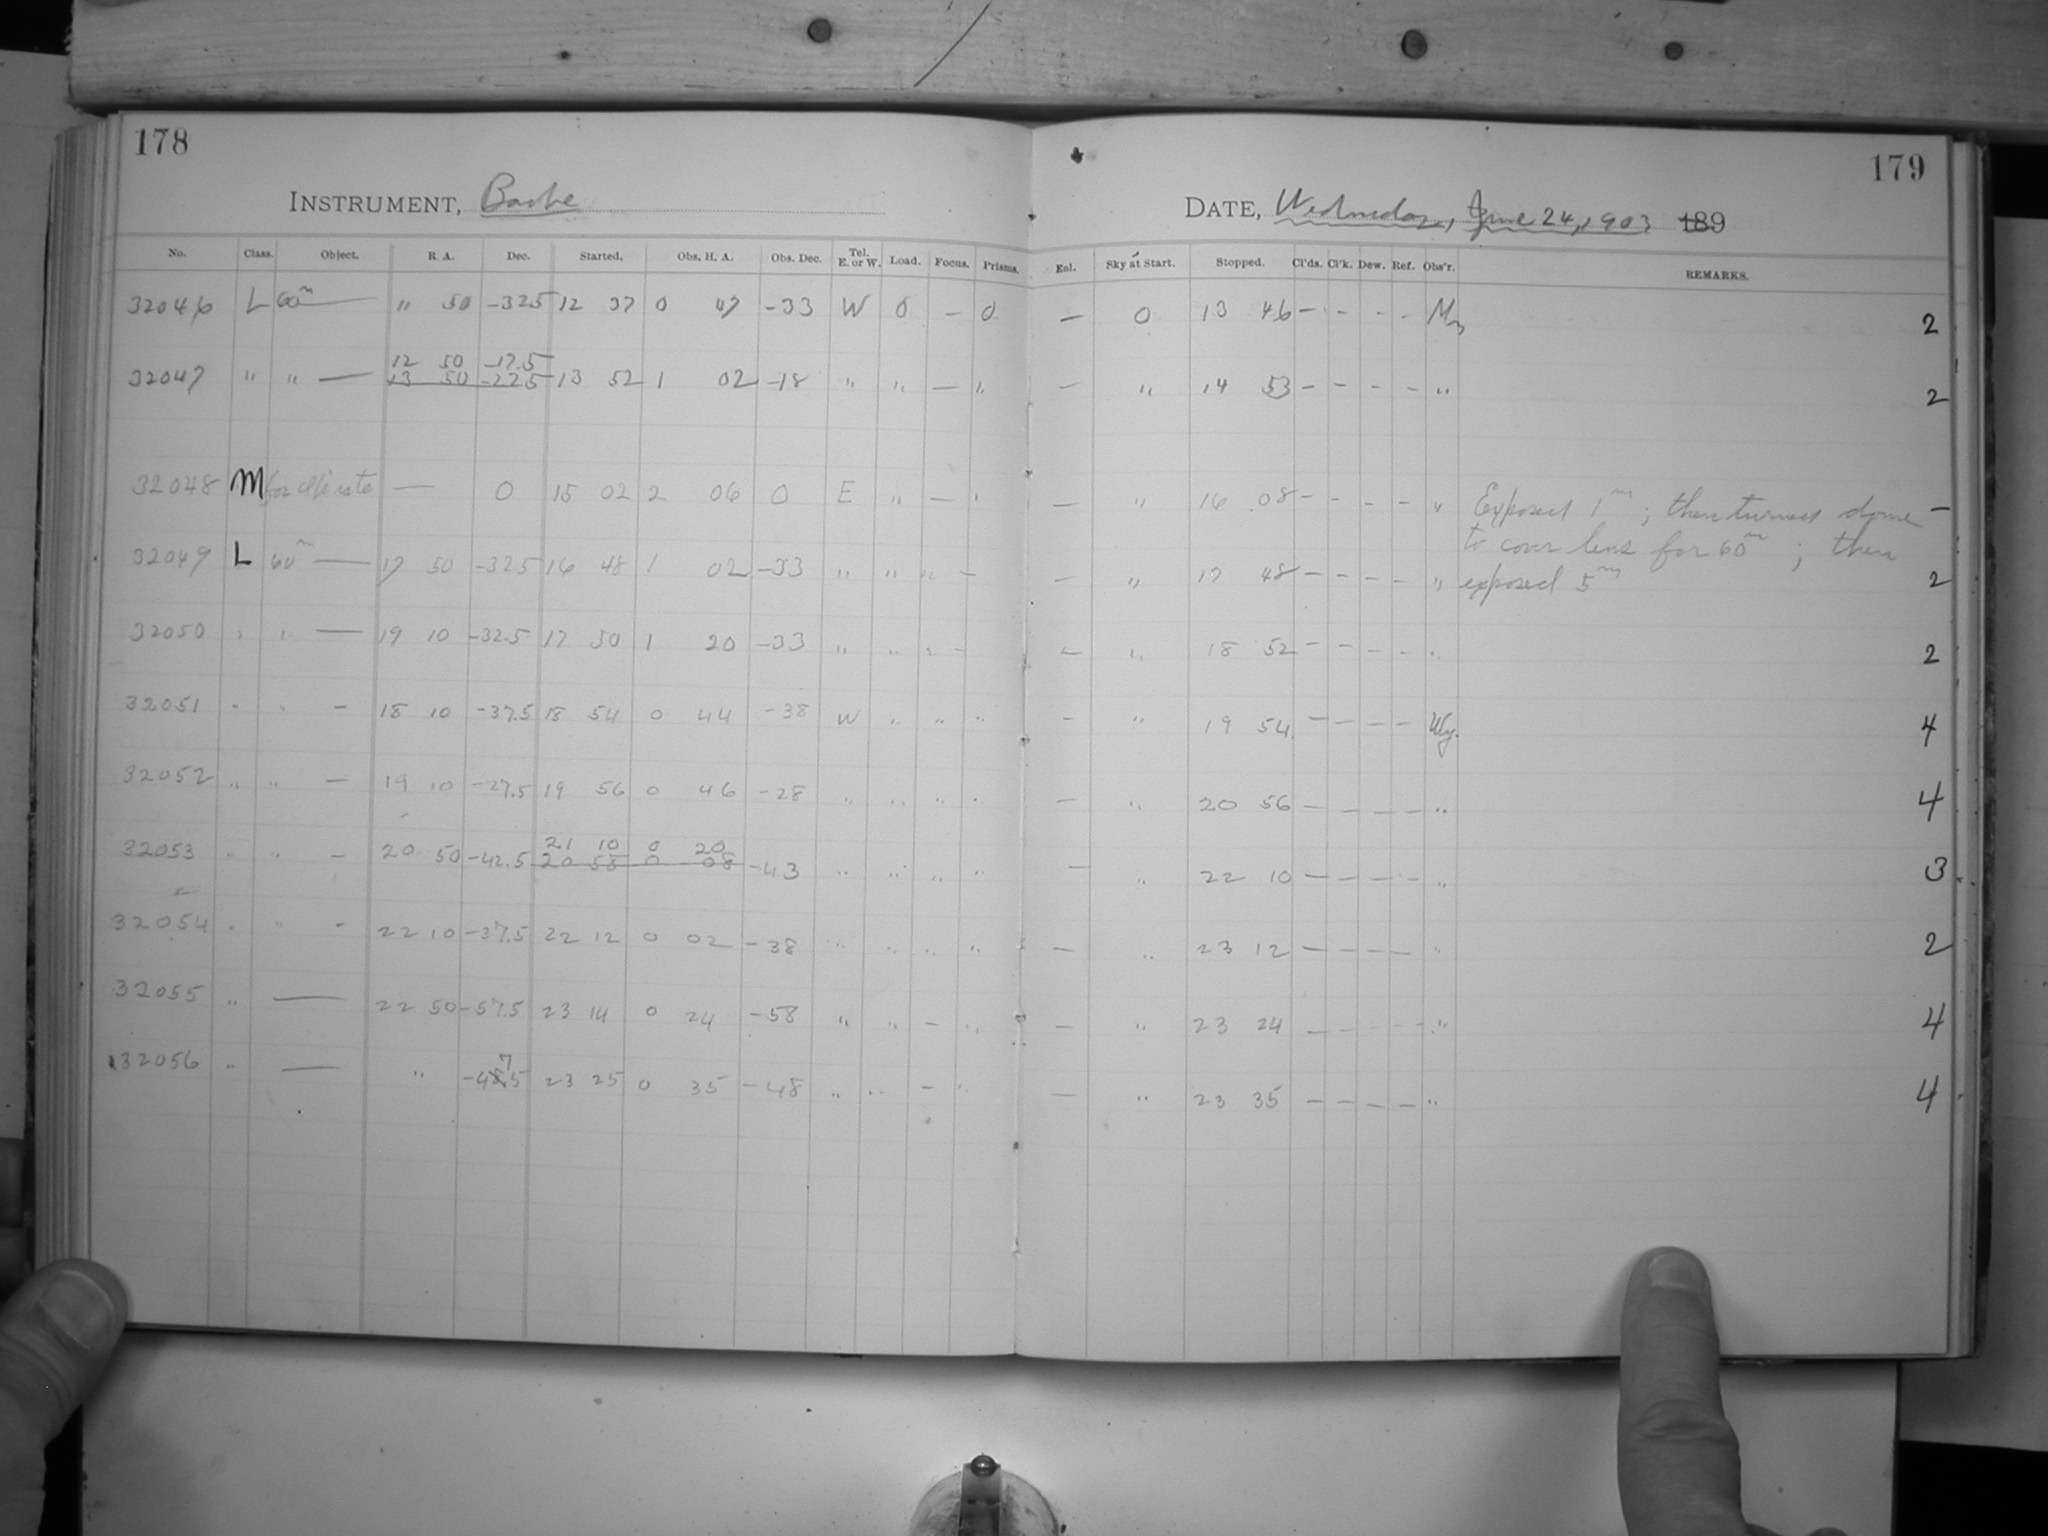 178
179
INSTRUMENT, Bache
DATE, Wednesday, June 24, 1903 189
No. Class. Object. R. A. Dec. Started. Obs. H. A. Obs. Dec. Tel. E. or W. Load. Focus. Prisms. Enl. Sky at Start. Stopped. Cl'ds. Cl'k. Dew. Ref. Obs'r. REMARKS.
32046 L 60m — " 50 -32.5 12 37 0 47 -33 W 0 — 0 — 0 13 46 — - - - M 2
12 50 -17.5
32047 " " — 13 50 -22.5 13 52 1 02 -18 " " — " — " 14 53 — — — — " 2
32048 M — 0 15 02 2 06 0 E " — " — " 16 08 — — — — " Exposed 1m; then turned dome —
to cover lens for 60m; then
32049 L 60m — 17 50 -32.5 16 48 1 02 -33 " " " — — " 17 48 — — — — " exposed 5m 2
32050 " " — 19 10 -32.5 17 50 1 20 -33 " " " — — " 18 52 — — — — " 2
32051 " " — 18 10 -37.5 18 54 0 44 -38 W " " " — " 19 54 — — — — Wy. 4
32052 " " — 19 10 -27.5 19 56 0 46 -28 " " " " — " 20 56 — — — — " 4
21 10 0 20
32053 " " — 20 50 -42.5 20 58 0 08 -43 " " " " — " 22 10 — — — — " 3
32054 " " - 22 10 -37.5 22 12 0 02 -38 " " " " — " 23 12 — — — — " 2
32055 " — 22 50 -57.5 23 14 0 24 -58 " " — " — " 23 24 — — — — " 4
7
32056 " — " -48.5 23 25 0 35 -48 " " — " — " 23 35 — — — — " 4